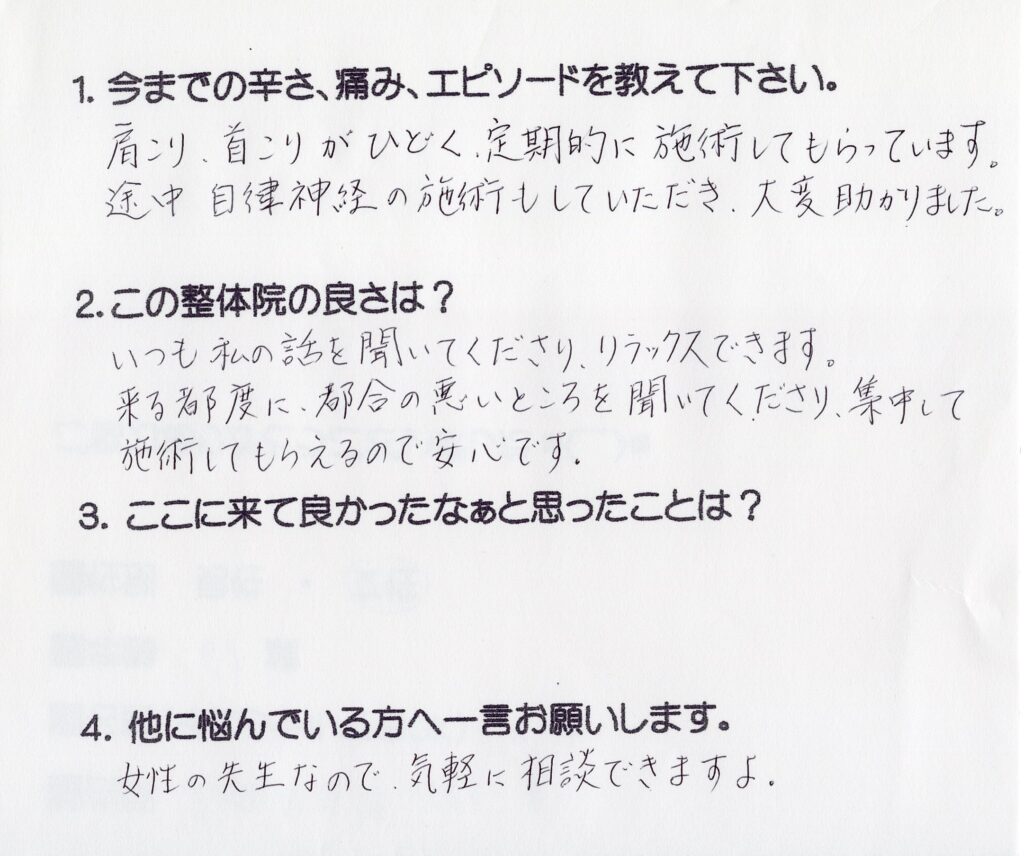 1. 今までの辛さ、痛み、エピソードを教えて下さい。
肩こり、首こりがひどく、定期的に施術してもらっています。
途中自律神経の施術もしていただき、大変助かりました。
2. この整体院の良さは？
いつも私の話を聞いてくださり、リラックスできます。
来る都度に、都合の悪いところを聞いてくださり、集中して
施術してもらえるので安心です。
3. ここに来て良かったなぁと思ったことは？
4. 他に悩んでいる方へ一言お願いします。
女性の先生なので、気軽に相談できますよ。